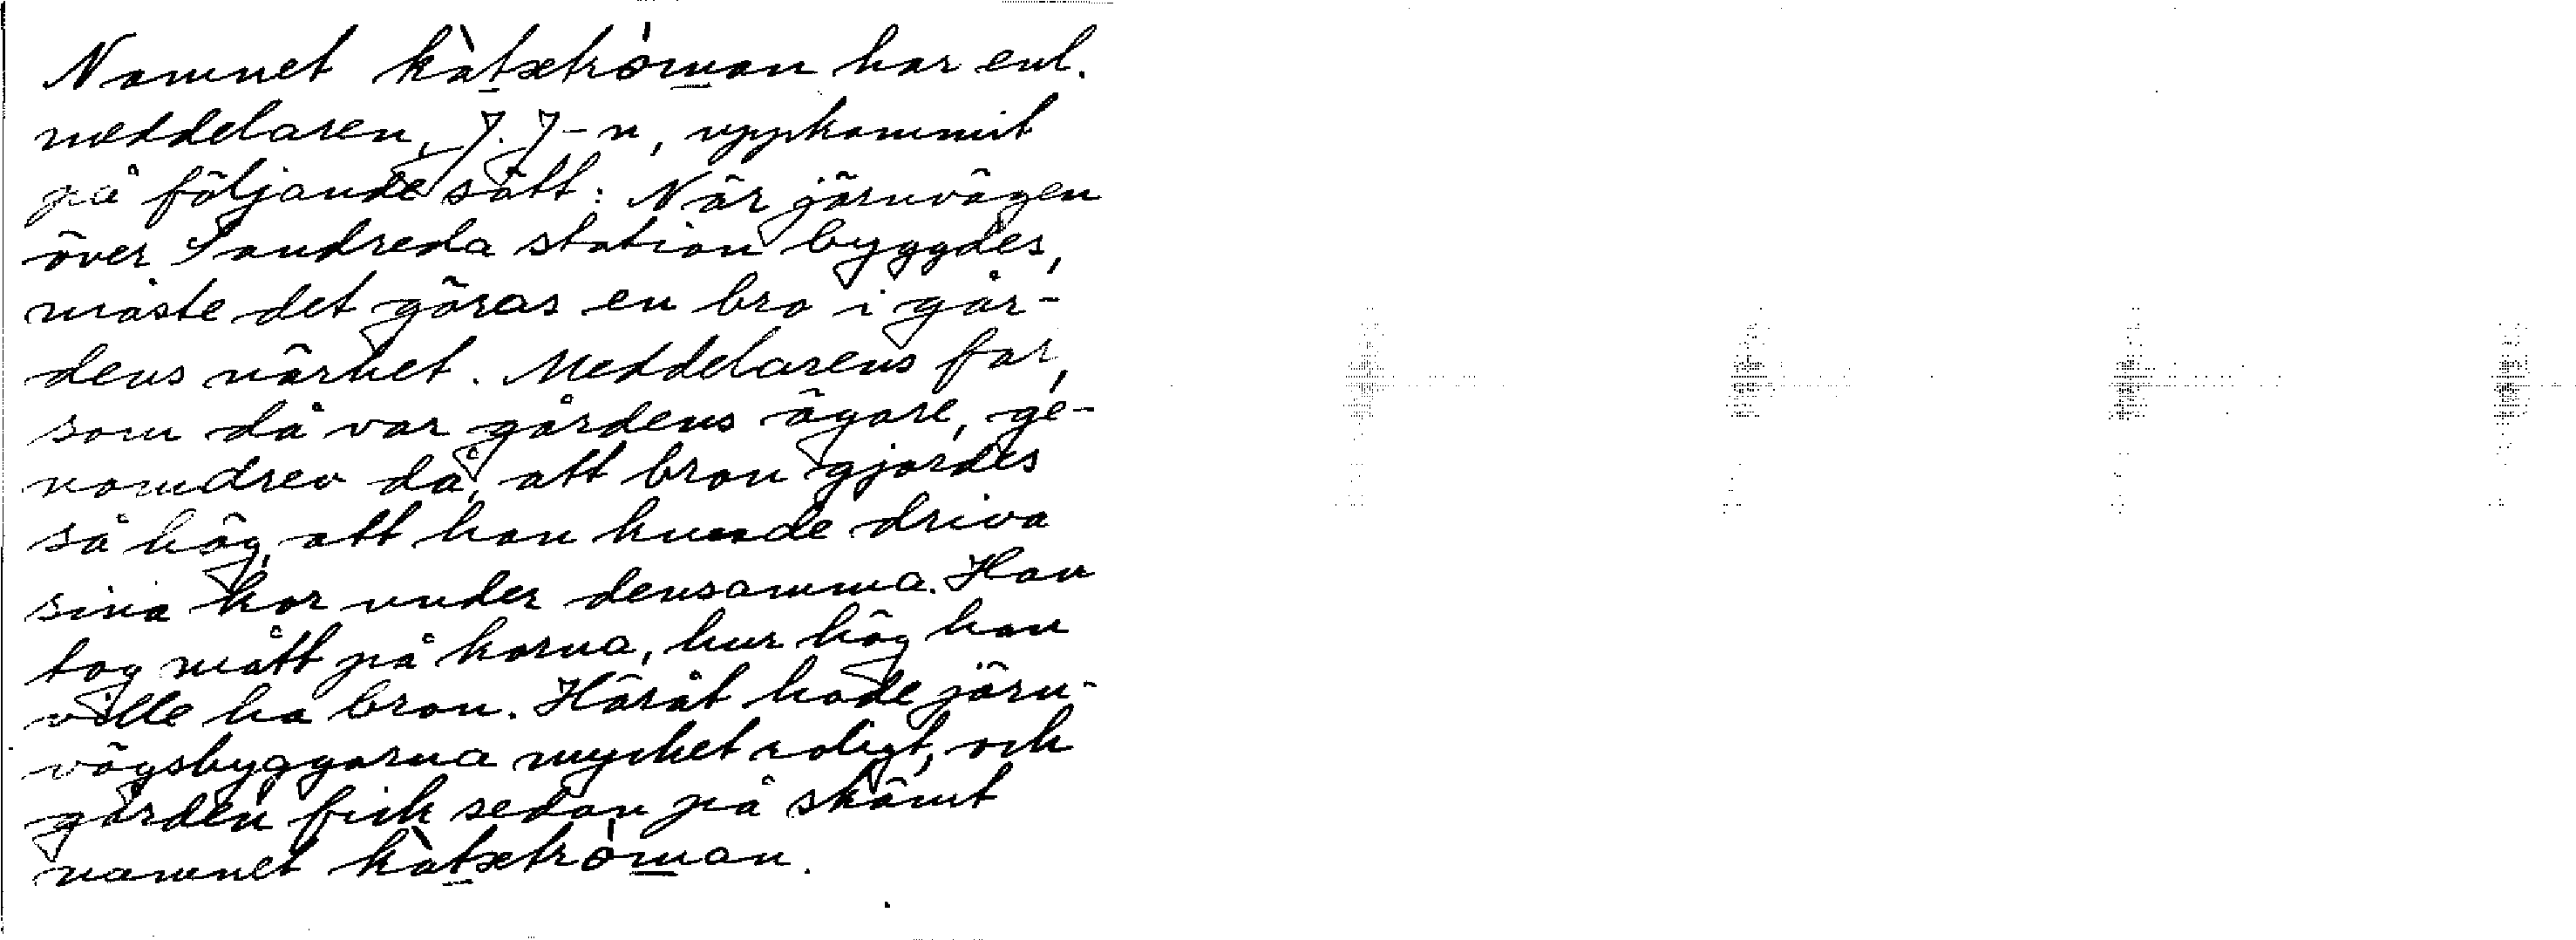 Namnet kàtsetròman har enl.
meddelaren, J. J-n, uppkommit
på följande sätt: När järnvägen
över Sandreda station byggdes,
måste det göras en bro i går-
dens närhet. Meddelarens far,
som då var gårdens ägare, ge-
nomdrev då, att bron gjordes
så hög, att han kunde driva
sina kor under densamma. Han
tog mått på korna, hur hög han
ville ha bron. Häråt hade järn-
vägsbyggarna mycket roligt, och
gården fick sedan på skämt
namnet kàtsetròman.